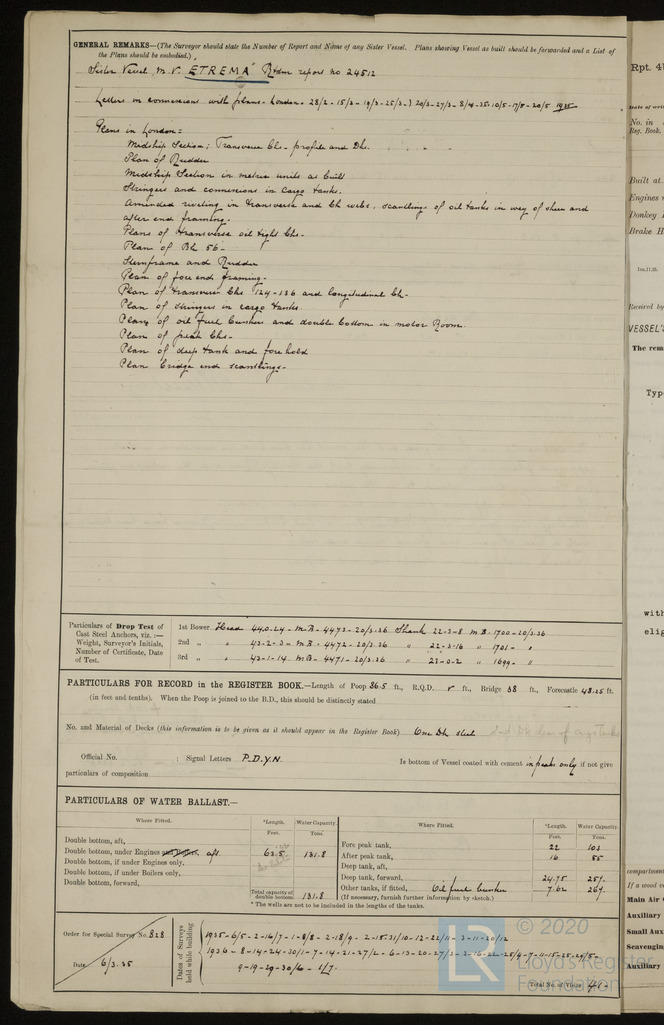 GENERAL REMARKS—(The Surveyor should state the Number of Report and Name of any Sister Vessel. Plans showing Vessel as built should be forwarded and a List of
the Plans should be embodied.)
Sister Vessel M.V. "ETREMA" Rdm report no 24512
Letters in connexions with plans- London- 28/2 - 15/3 - 19/3 - 25/3-) 20/3-27/3- 8/4-25-10/5-17/5-20/5 1935
Plans in London:
Midship Section; Transverse Bhs- profile and Dk.
Plan of Rudder
Midship Section in metric units as built
Stringers and connexions in cargo tanks.
Amended riveting in transverse and bh webs, scantlings of oil tanks in way of sheer and
after end framing.
Plans of transverse oil tight Bhs-
Plan of Bh 56-
Sternframe and Rudder
Plan of fore end framing-
Plan of transverse Bhs 124-136 and longitudinal Bh-
Plan of stringers in cargo tanks
Plans of oil fuel bunker and double bottom in motor Room.
Plan of peak Bhs-
Plan of deep tank and fore hold
Plan bridge end scantlings-
Particulars of Drop Test of
Cast Steel Anchors, viz. :—
Weight, Surveyor's Initials,
Number of Certificate, Date
of Test.
1st Bower Head 44.0.24 - M.B - 4473 - 20/3.36 Shank 22-3-8 M.B. 1700 - 20/3.36
2nd „ „ 43-2-3 - M.B - 4472 - 20/3.36 „ 22-3-16 „ 1701 - „
3rd „ „ 43-1-14 M.B - 4471 - 20/3.36 „ 23-0-2 „ 1699 - „
PARTICULARS FOR RECORD in the REGISTER BOOK.—Length of Poop 86.5 ft., R.Q.D. ft., Bridge 38 ft., Forecastle 48.25 ft.
(in feet and tenths). When the Poop is joined to the B.D., this should be distinctly stated
No. and Material of Decks (this information is to be given as it should appear in the Register Book) One Dk steel
Official No. ; Signal Letters P.D.Y.N. Is bottom of Vessel coated with cement in peaks only if not give
particulars of composition
PARTICULARS OF WATER BALLAST.—
Where Fitted. *Length. Water Capacity. Where Fitted. *Length. Water Capacity.
Feet. Tons. Feet. Tons.
Double bottom, aft, Fore peak tank, 22 103
Double bottom, under Engines and Boilers, aft. 62.5 131.8 After peak tank, 16 55
Double bottom, if under Engines only, Deep tank, aft,
Double bottom, if under Boilers only, Deep tank, forward, 24.75 257.
Double bottom, forward, Other tanks, if fitted, Oil fuel bunker 7.62 267.
Total capacity of double bottom 131.8 (If necessary, furnish further information by sketch.)
* The wells are not to be included in the lengths of the tanks.
Order for Special Survey No. 828
Date 6/3.35
Dates of Surveys
held while building
1935 - 6/5 - 2-16/7 - 1-8/8 - 2-18/9 - 2-15-31/10-12-22/11 - 3-11-20/12
1936 - 8-14-24-30/1 - 7-14-21-27/2 - 6-13-20-27/3 - 3-16-22-25/4 - 7-11-15-25-29/5 -
9-19-29-30/6 - 1/7.
Total No. of Visits 41-
© 2020
LR
Lloyd's Register
Foundation
Rpt. 4
No. in
Reg. Book.
Built at
Engines
Donkey
Brake H
Received by
VESSEL'S
The rem
Typ
with
elig
compartment
If a wood v
Main Air
Auxiliary
Small Aux
Scavenging
Auxiliary